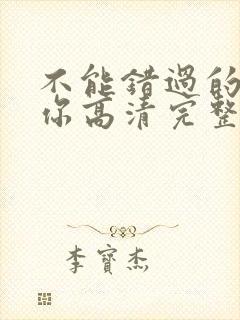 不能错过的
你高清完整
李宝杰